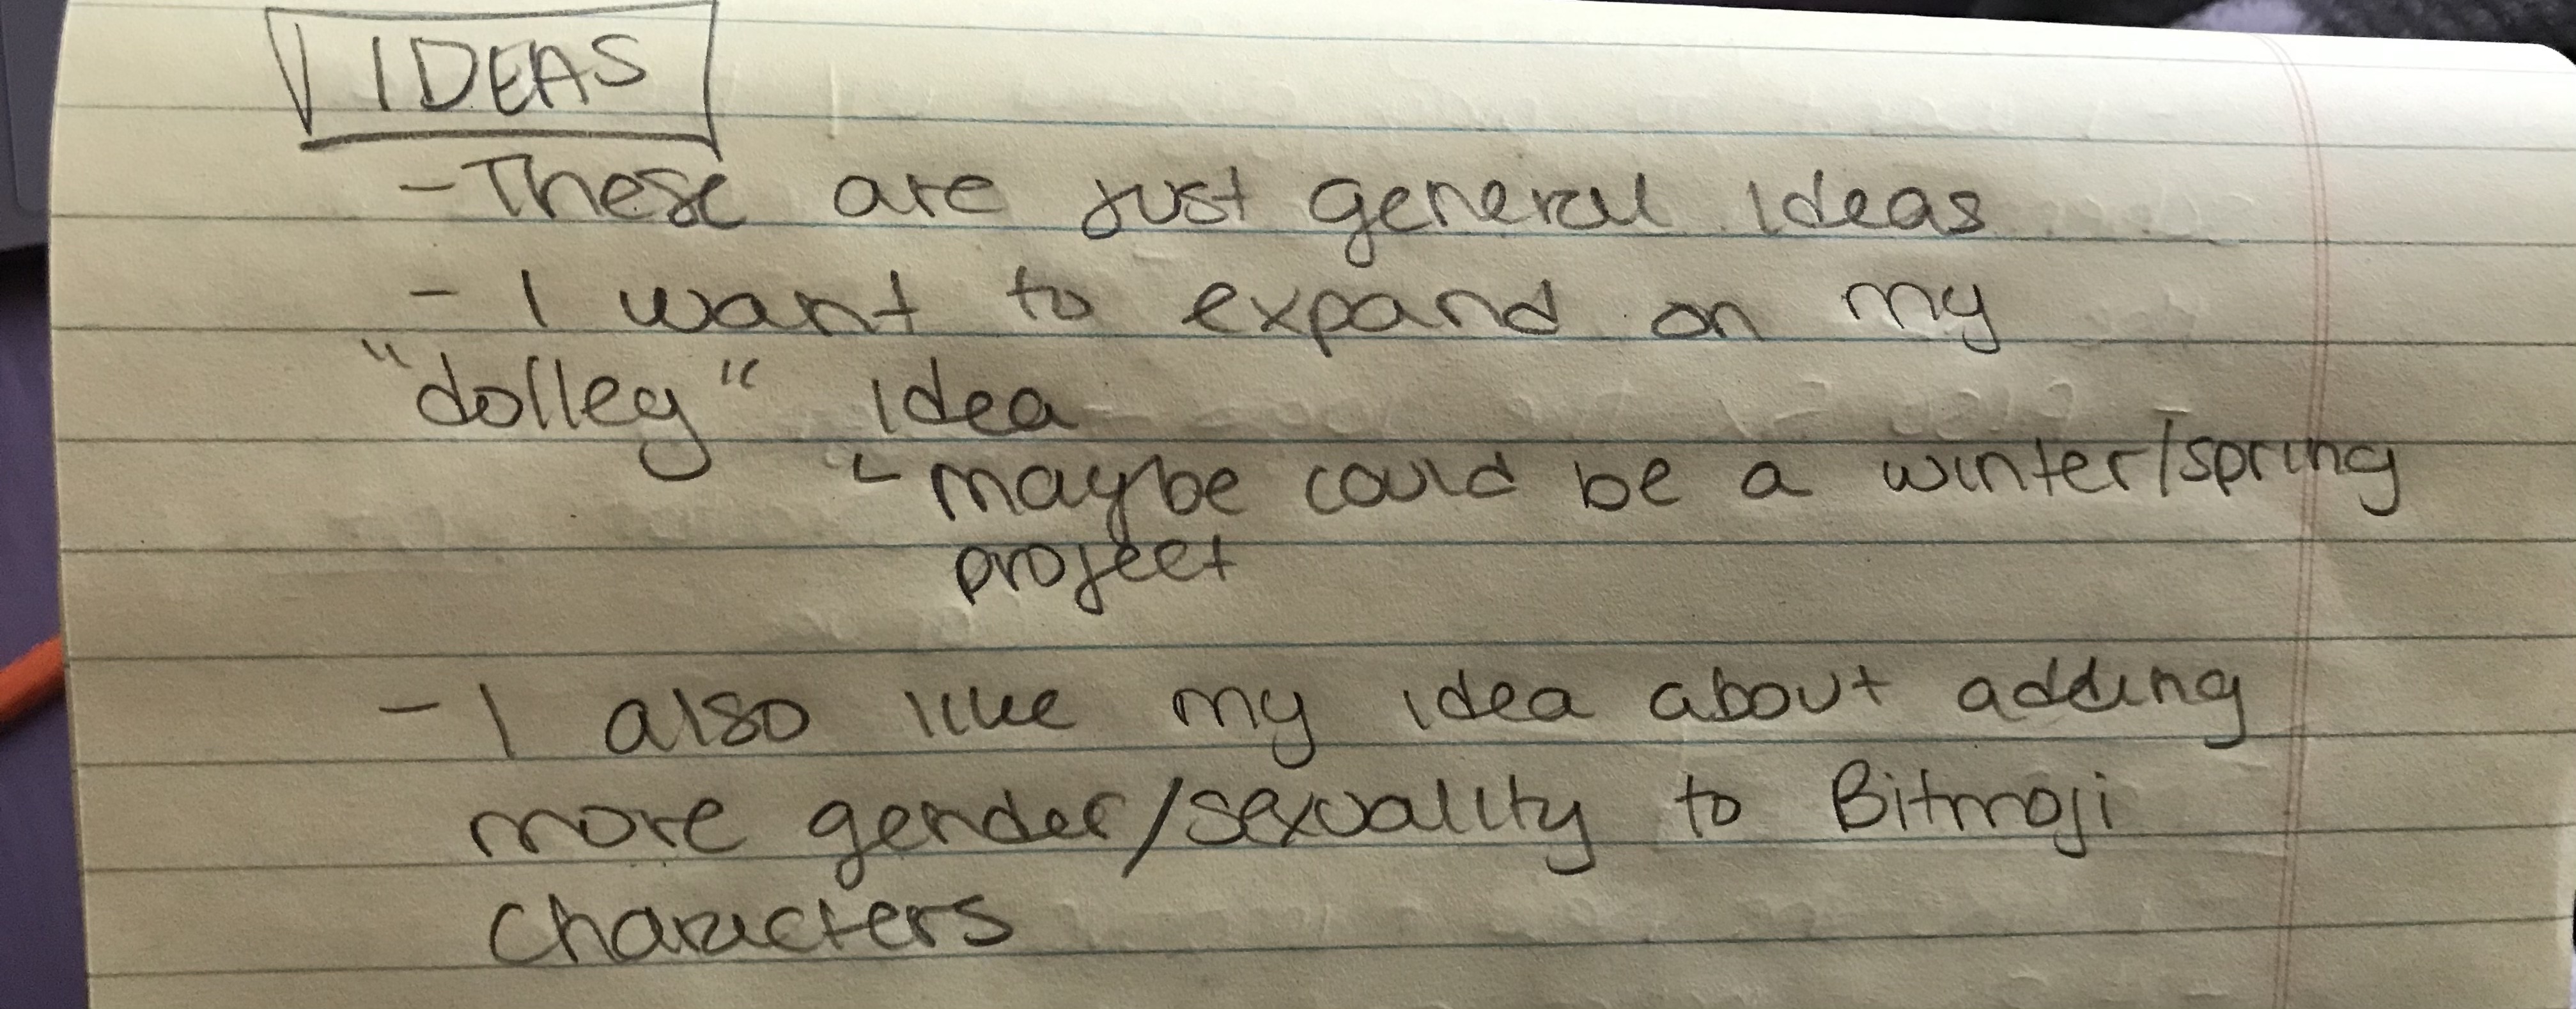 IDEAS
- These are just general ideas
- I want to expand on my
"dolley" idea
- maybe could be a winter/spring
project
- I also like my idea about adding
more gender/sexuality to Bitmoji
characters